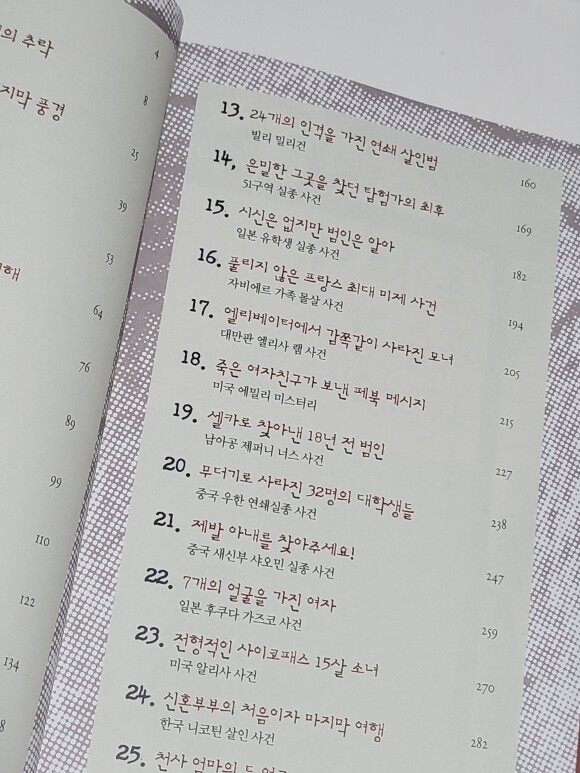 의 추락
4
지막 풍경
8
25
39
53
해
64
76
89
99
110
122
134
8
13. 24개의 인격을 가진 연쇄 살인범
빌리 밀리건
160
14. 은밀한 그곳을 찾던 탐험가의 최후
51구역 실종 사건
169
15. 시신은 없지만 범인은 알아
일본 유학생 실종 사건
182
16. 풀리지 않은 프랑스 최대 미제 사건
자비에르 가족 몰살 사건
194
17. 엘리베이터에서 감쪽같이 사라진 모녀
대만판 엘리사 램 사건
205
18. 죽은 여자친구가 보낸 페북 메시지
미국 에밀리 미스터리
215
19. 셀카로 찾아낸 18년 전 범인
남아공 제퍼니 너스 사건
227
20. 무더기로 사라진 32명의 대학생들
중국 우한 연쇄실종 사건
238
21. 제발 아내를 찾아주세요!
중국 새신부 샤오민 실종 사건
247
22. 7개의 얼굴을 가진 여자
일본 후쿠다 가즈코 사건
259
23. 전형적인 사이코패스 15살 소녀
미국 알리사 사건
270
24. 신혼부부의 처음이자 마지막 여행
한국 니코틴 살인 사건
282
25. 천사 엄마의 두